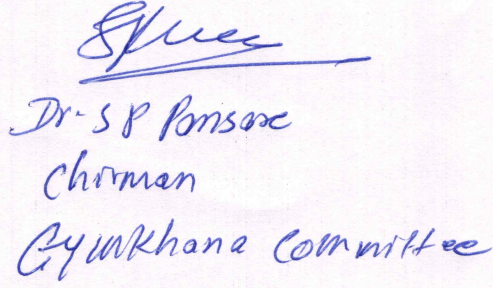 Dr. S P Pansare
Chirman
Gymkhana Committee